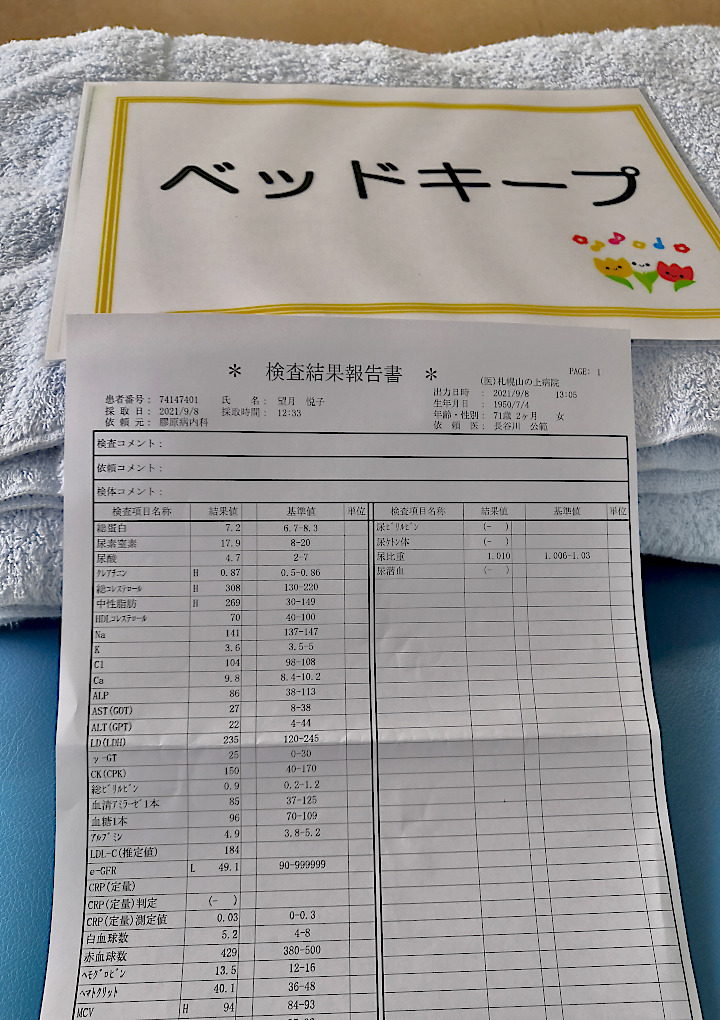 ベッドキープ
＊ 検査結果報告書 ＊ PAGE: 1
(医)札幌山の上病院
患者番号： 74147401 氏 名： 望月 悦子 出力日時 ： 2021/9/8 13:05
採取日： 2021/9/8 採取時間： 12:33 生年月日 ： 1950/7/4
依頼元： 膠原病内科 年齢・性別： 71歳 2ヶ月 女
依頼医： 長谷川 公範
検査コメント：
依頼コメント：
検体コメント：
検査項目名称 結果値 基準値 単位 検査項目名称 結果値 基準値 単位
総蛋白 7.2 6.7-8.3 尿ﾋﾞﾘﾙﾋﾞﾝ (- )
尿素窒素 17.9 8-20 尿ｹﾄﾝ体 (- )
尿酸 4.7 2-7 尿比重 1.010 1.006-1.03
ｸﾚｱﾁﾆﾝ H 0.87 0.5-0.86 尿潜血 (- )
総ｺﾚｽﾃﾛｰﾙ H 308 130-220
中性脂肪 H 269 30-149
HDLｺﾚｽﾃﾛｰﾙ 70 40-100
Na 141 137-147
K 3.6 3.5-5
Cl 104 98-108
Ca 9.8 8.4-10.2
ALP 86 38-113
AST(GOT) 27 8-38
ALT(GPT) 22 4-44
LD(LDH) 235 120-245
γ-GT 25 0-30
CK(CPK) 150 40-170
総ﾋﾞﾘﾙﾋﾞﾝ 0.9 0.2-1.2
血清ｱﾐﾗｰｾﾞ1本 85 37-125
血糖1本 96 70-109
ｱﾙﾌﾞﾐﾝ 4.9 3.8-5.2
LDL-C(推定値) 184
e-GFR L 49.1 90-999999
CRP(定量)
CRP(定量)判定 (- )
CRP(定量)測定値 0.03 0-0.3
白血球数 5.2 4-8
赤血球数 429 380-500
ﾍﾓｸﾞﾛﾋﾞﾝ 13.5 12-16
ﾍﾏﾄｸﾘｯﾄ 40.1 36-48
MCV H 94 84-93